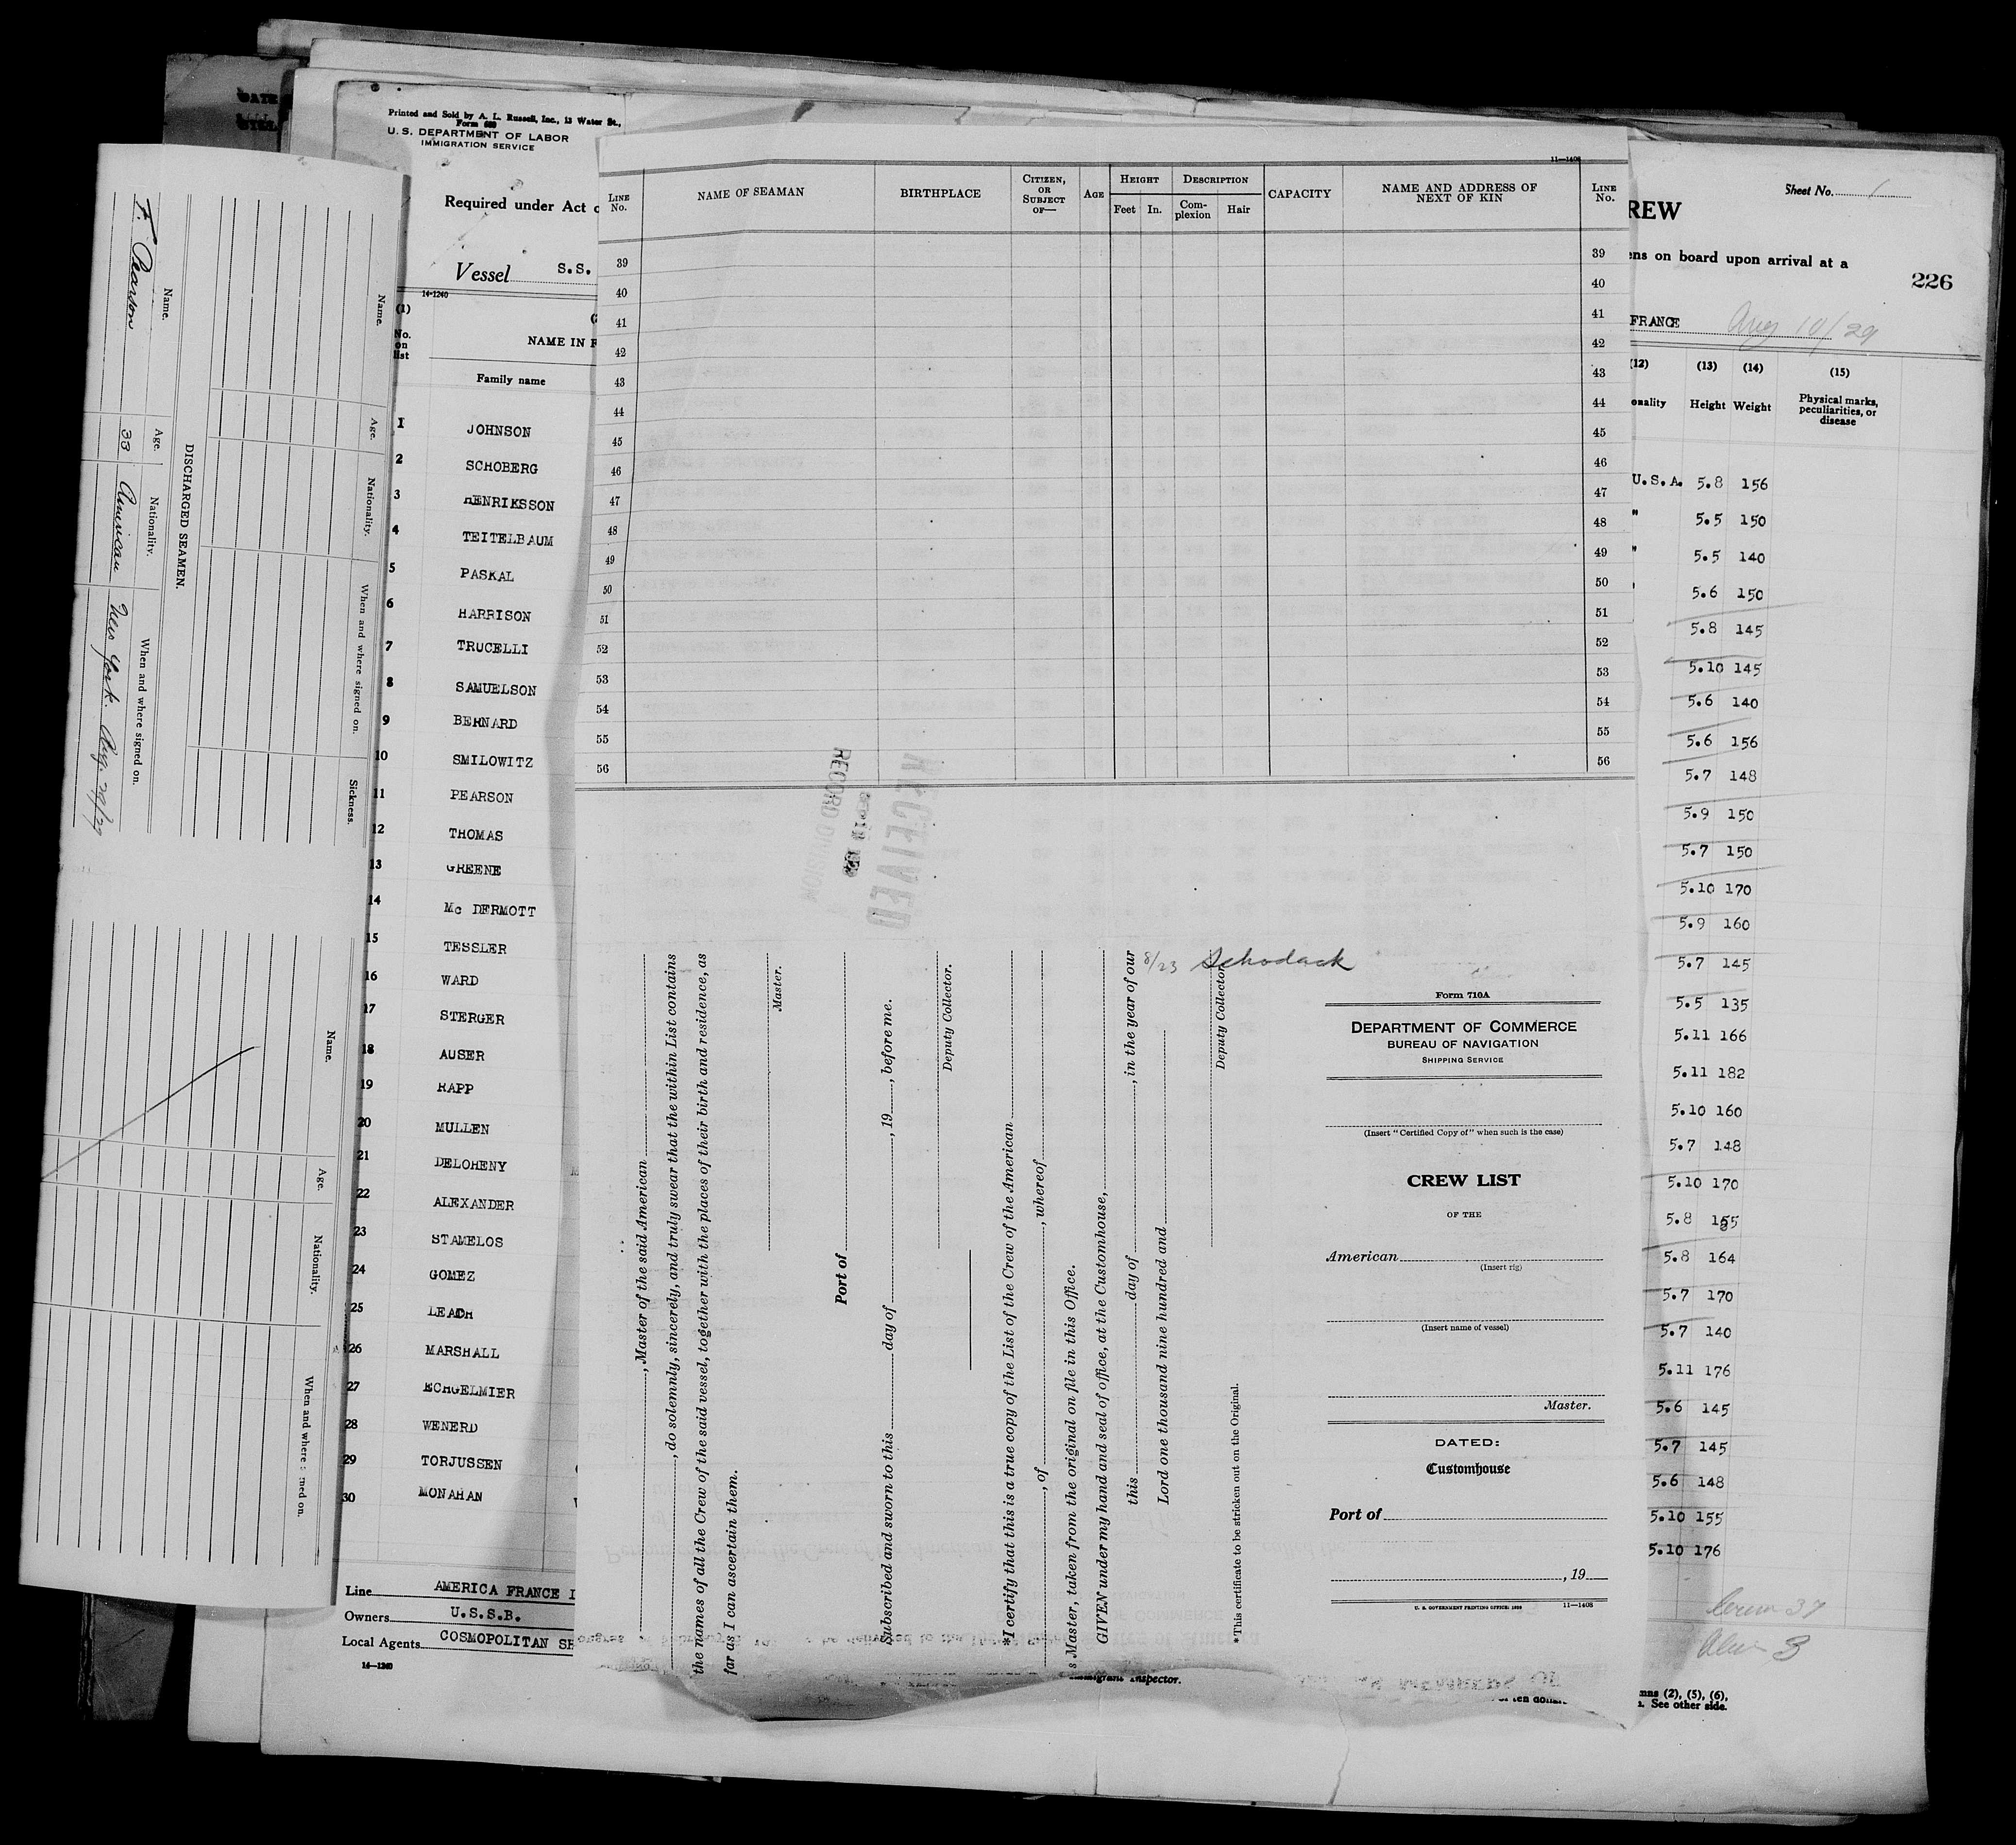 DATE
Printed and Sold by A. L. Russell, Inc., 13 Water St.,
Form 680
U. S. DEPARTMENT OF LABOR
IMMIGRATION SERVICE
Required under Act o
Vessel S.S.
14-1240
(1)
No. on list
NAME IN F
Family name
1 JOHNSON
2 SCHOBERG
3 HENRIKSSON
4 TEITELBAUM
5 PASKAL
6 HARRISON
7 TRUCELLI
8 SAMUELSON
9 BERNARD
10 SMILOWITZ
11 PEARSON
12 THOMAS
13 GREENE
14 Mc DERMOTT
15 TESSLER
16 WARD
17 STERGER
18 AUSER
19 RAPP
20 MULLEN
21 DELOHENY
22 ALEXANDER
23 STAMELOS
24 GOMEZ
25 LEACH
26 MARSHALL
27 ECHGELMIER
28 WENERD
29 TORJUSSEN
30 MONAHAN
Line AMERICA FRANCE
Owners U.S.S.B.
Local Agents COSMOPOLITAN SH
14—1240
Name. Age. Nationality. When and where signed on. Sickness.
DISCHARGED SEAMEN.
Name. Age. Nationality. When and where signed on.
F. Pearson 33 American New York. Aug. 29/29
Name. Age. Nationality. When and where signed on.
11—1408
LINE No.
NAME OF SEAMAN
BIRTHPLACE
CITIZEN, OR SUBJECT OF—
AGE
HEIGHT
Feet In.
DESCRIPTION
Complexion Hair
CAPACITY
NAME AND ADDRESS OF NEXT OF KIN
LINE No.
39 39
40 40
41 41
42 42
43 43
44 44
45 45
46 46
47 47
48 48
49 49
50 50
51 51
52 52
53 53
54 54
55 55
56 56
RECEIVED
RECORD DIVISION
, Master of the said American
, do solemnly, sincerely, and truly swear that the within List contains
the names of all the Crew of the said vessel, together with the places of their birth and residence, as
far as I can ascertain them.
Master.
Port of
Subscribed and sworn to this day of , 19 , before me.
Deputy Collector.
*I certify that this is a true copy of the List of the Crew of the American
, of , whereof
s Master, taken from the original on file in this Office.
GIVEN under my hand and seal of office, at the Customhouse,
this day of , in the year of our
Lord one thousand nine hundred and
Deputy Collector.
*This certificate to be stricken out on the Original.
8/23 Schodack
Form 710A
DEPARTMENT OF COMMERCE
BUREAU OF NAVIGATION
SHIPPING SERVICE
(Insert "Certified Copy of" when such is the case)
CREW LIST
OF THE
American
(Insert rig)
(Insert name of vessel)
Master.
DATED:
Customhouse
Port of
, 19
U. S. GOVERNMENT PRINTING OFFICE: 11—1408
Immigrant Inspector.
Sheet No. 1
REW
ens on board upon arrival at a
226
FRANCE Aug 10/29
(12) (13) (14) (15)
onality Height Weight Physical marks, peculiarities, or disease
U.S.A. 5.8 156
" 5.5 150
" 5.5 140
" 5.6 150
5.8 145
5.10 145
5.6 140
5.6 156
5.7 148
5.9 150
5.7 150
5.10 170
5.9 160
5.7 145
5.5 135
5.11 166
5.11 182
5.10 160
5.7 148
5.10 170
5.8 155
5.8 164
5.7 170
5.7 140
5.11 176
5.6 145
5.7 145
5.6 148
5.10 155
5.10 176
mns (2), (5), (6),
See other side.